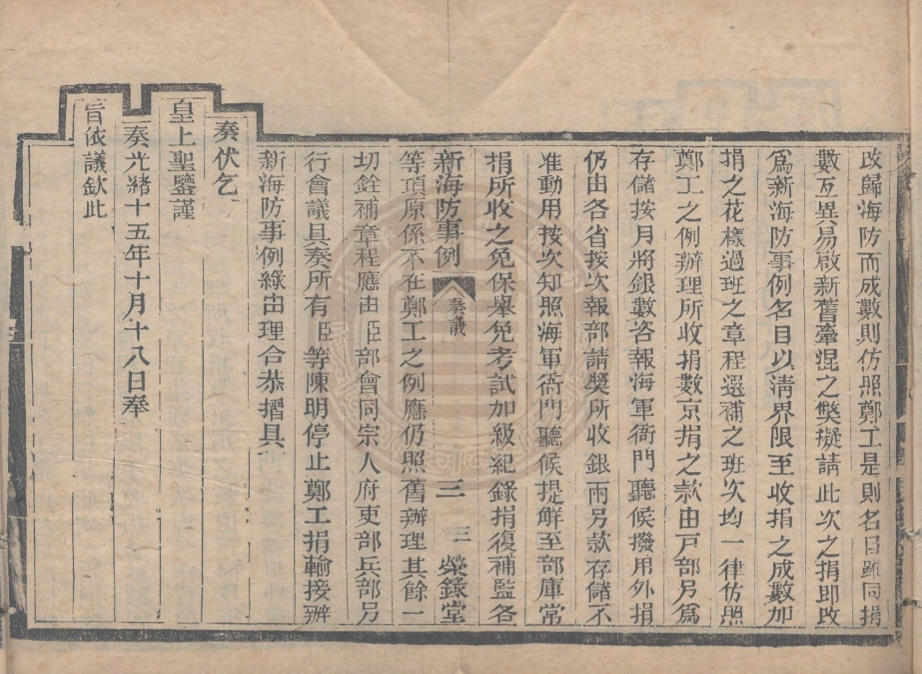 改歸海防而成數則仿照鄭工是則名目雖同捐
數互異易啟新舊牽混之獘擬請此次之捐即改
爲新海防事例名目以淸界限至收捐之成數加
捐之花樣過班之章程選補之班次均一律仿照
鄭工之例辦理所收捐數京捐之款由戸部另爲
存儲按月將銀數咨報海軍衙門聽候撥用外捐
仍由各省按次報部請奬所收銀兩另款存儲不
准動用按次知照海軍衙門聽候提解至部庫常
捐所收之免保舉免考試加級紀錄捐復補監各
新海防事例 奏議 三 三 榮錄堂
等項原係不在鄭工之例應仍照舊辦理其餘一
切銓補章程應由臣部會同宗人府吏部兵部另
行會議具奏所有臣等陳明停止鄭工捐輸接辦
新海防事例緣由理合恭摺具
奏伏乞
皇上聖鑒謹
奏光緖十五年十月十八日奉
旨依議欽此